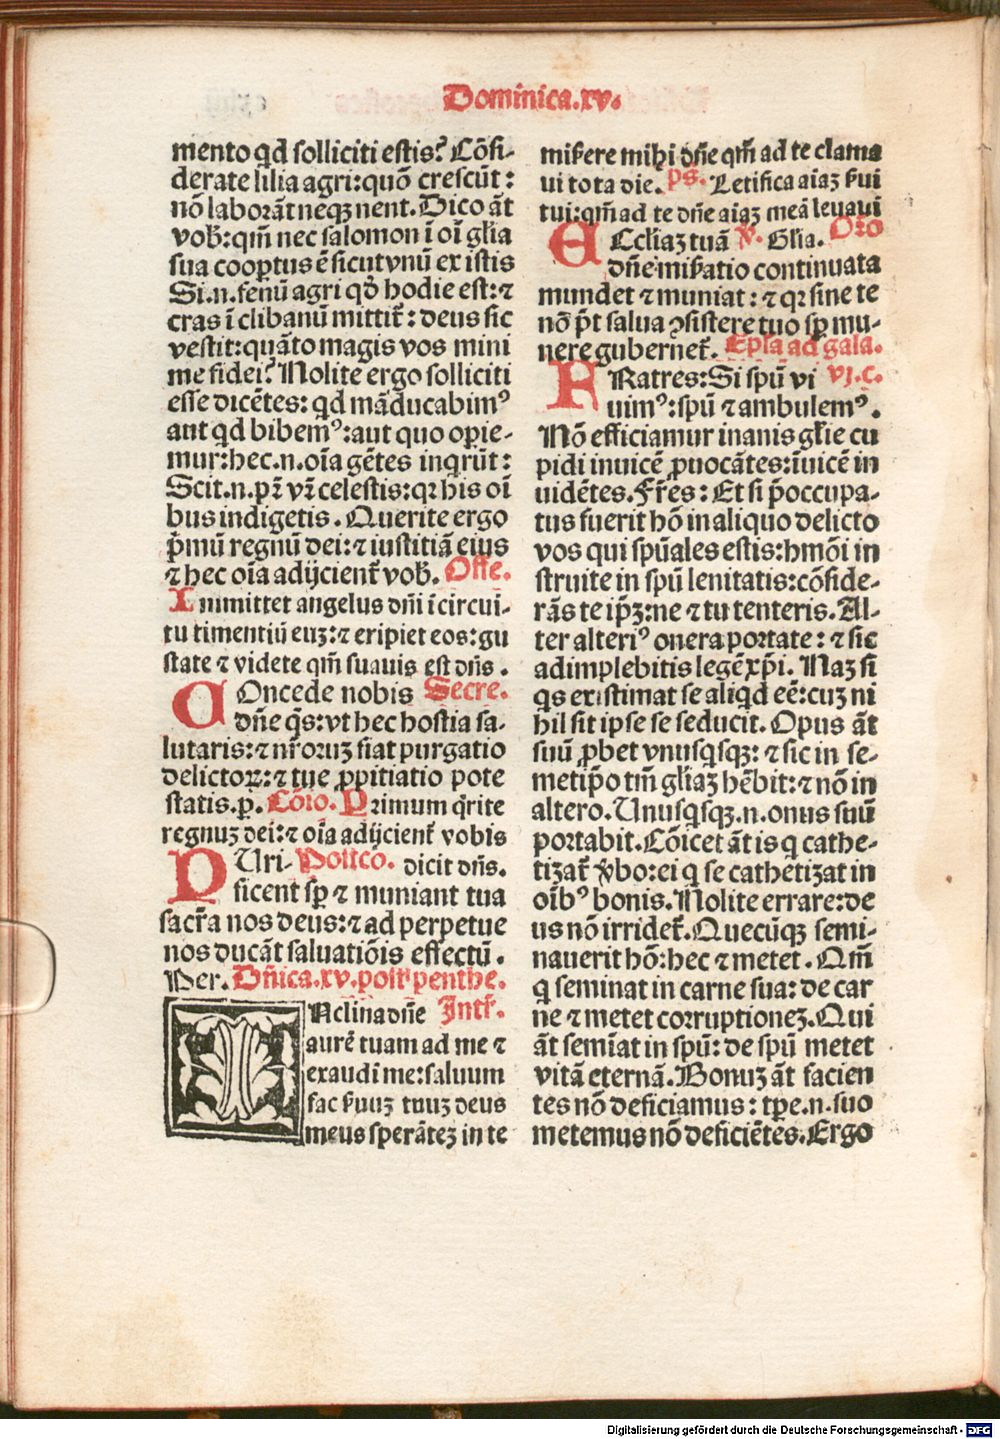 Dominica.xv.
mento qd solliciti estis? Cõsi-
derate lilia agri:quõ crescũt:
nõ laborãt neqꝫ nent. Dico ãt
vob̃:qm̃ nec salomon ĩ oĩ gl̃ia
sua cooptus ẽ sicut vnũ ex istis
Si.n.fenũ agri qd̃ hodie est:⁊
cras ĩ clibanũ mittit̃: deus sic
vestit:quãto magis vos mini
me fidei? Nolite ergo solliciti
esse dicẽtes: qd mãducabimꝰ
aut qd bibemꝰ:aut quo opie-
mur:hec.n.oĩa gẽtes inqrũt:
Scit.n.pr̃ vr̃ celestis:qꝛ his oĩ
bus indigetis. Querite ergo
p̃mũ regnũ dei:⁊ iustitiã eius
⁊ hec oĩa adijcient̃ vob̃. Offe.
Inmittet angelus dñi ĩ circui-
tu timentiũ euꝫ:⁊ eripiet eos:gu
state ⁊ videte qm̃ suauis est dñs.
COncede nobis Secre.
dñe q̃s:vt hec hostia sa-
lutaris:⁊ nr̃oruꝫ fiat purgatio
delictoꝝ:⁊ tue ꝓpitiatio pote
statis.p. Cõio. Primum q̃rite
regnuꝫ dei:⁊ oĩa adijcient̃ vobis
PUri- Postco. dicit dñs.
ficent sp̃ ⁊ muniant tua
sacr̃a nos deus:⁊ ad perpetue
nos ducãt saluatiõis effectũ.
Per. Dñica.xv.post penthe.
INclina dñe Intr̃.
aurẽ tuam ad me ⁊
exaudĩ me:saluum
fac s̃uuꝫ tuuꝫ deus
meus sperãteꝫ in te
mis̃ere mihi dñe qm̃ ad te clama
ui tota die. ps̃. Letifica aĩaꝫ s̃ui
tui:qm̃ ad te dñe aĩaꝫ meã leuaui
ECcl̃iaꝫ tuã ℣. Gl̃ia. Oro
dñe mis̃atio continuata
mundet ⁊ muniat: ⁊ qꝛ sine te
nõ p̃t salua ꝯsistere tuo sp̃ mu-
nere gubernet̃. Epl̃a ad gala.
FRatres:Si spũ vi vj.c.
uimꝰ:spũ ⁊ ambulemꝰ.
Nõ efficiamur inanis gl̃ie cu
pidi inuicẽ ꝓuocãtes:ĩuicẽ in
uidẽtes. Fr̃es: Et si p̃occupa-
tus fuerit hõ in aliquo delicto
vos qui spũales estis:hmõi in
struite in spũ lenitatis:cõside-
rãs te ip̃ꝫ:ne ⁊ tu tenteris. Al-
ter alteriꝰ onera portate: ⁊ sic
adimplebitis legẽ xp̃i. Naꝫ si
qs existimat se aliqd eẽ:cuꝫ ni
hil sit ipse se seducit. Opus ãt
suũ ꝓbet vnusqsqꝫ: ⁊ sic in se-
metip̃o tm̃ gl̃iaꝫ hẽbit:⁊ nõ in
altero. Unusqsqꝫ.n.onus suũ
portabit. Cõicet ãt is q cathe-
tizat̃ v̓bo:ei q se cathetizat in
oĩbꝰ bonis. Nolite errare:de
us nõ irridet̃. Quecũqꝫ semi-
nauerit hõ:hec ⁊ metet. Qm̃
q seminat in carne sua: de car
ne ⁊ metet corruptioneꝫ. Qui
ãt semĩat in spũ: de spũ metet
vitã eternã. Bonuꝫ ãt facien
tes nõ deficiamus: tpe.n.suo
metemus nõ deficiẽtes. Ergo
Digitalisierung gefördert durch die Deutsche Forschungsgemeinschaft - DFG